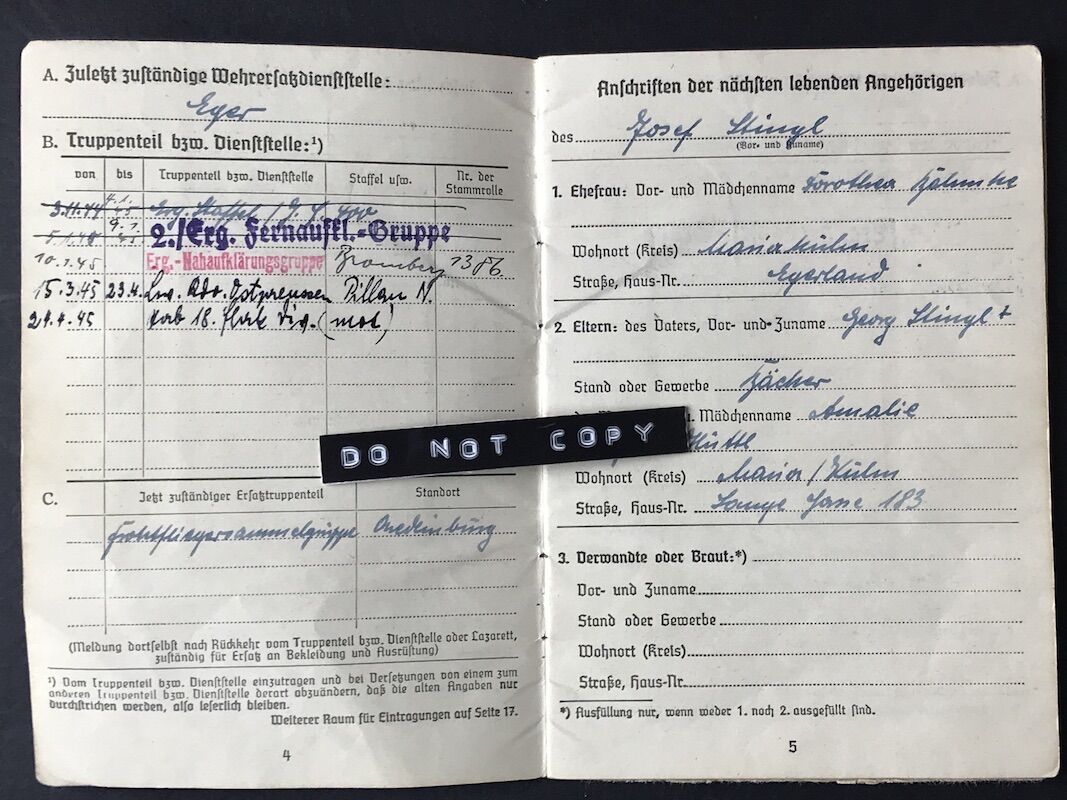 A. Zuletzt zuständige Wehrersatzdienststelle:
Eger
B. Truppenteil bzw. Dienststelle:¹)
von bis Truppenteil bzw. Dienststelle Staffel usw. Nr. der Stammrolle
3.11.44 4.1.45 Erg. Staffel /
9.1.45 2./Erg. Fernaufkl.-Gruppe
10.1.45 Erg.-Nahaufklärungsgruppe Bromberg 1386
15.3.45 23.4. Lw. Kdo. Ostpreussen Pillau N.
24.4.45 Stab 18. Flak Div. (mot)
C. Jetzt zuständiger Ersatztruppenteil Standort
Frontfliegersammelgruppe Quedlinburg
(Meldung dortselbst nach Rückkehr vom Truppenteil bzw. Dienststelle oder Lazarett,
zuständig für Ersatz an Bekleidung und Ausrüstung)
¹) Vom Truppenteil bzw. Dienststelle einzutragen und bei Versetzungen von einem zum
anderen Truppenteil bzw. Dienststelle derart abzuändern, daß die alten Angaben nur
durchstrichen werden, also leserlich bleiben.
Weiterer Raum für Eintragungen auf Seite 17.
4
Anschriften der nächsten lebenden Angehörigen
des Josef Stingl
(Vor- und Zuname)
1. Ehefrau: Vor- und Mädchenname Dorothea
Wohnort (Kreis) Maria Kulm
Straße, Haus-Nr. Egerland
2. Eltern: des Vaters, Vor- und Zuname Georg Stingl +
Stand oder Gewerbe Bäcker
Mädchenname Amalie
Wohnort (Kreis) Maria / Kulm
Straße, Haus-Nr. Lange Gasse 183
3. Verwandte oder Braut:*)
Vor- und Zuname
Stand oder Gewerbe
Wohnort (Kreis)
Straße, Haus-Nr.
*) Ausfüllung nur, wenn weder 1. noch 2. ausgefüllt sind.
5
DO NOT COPY